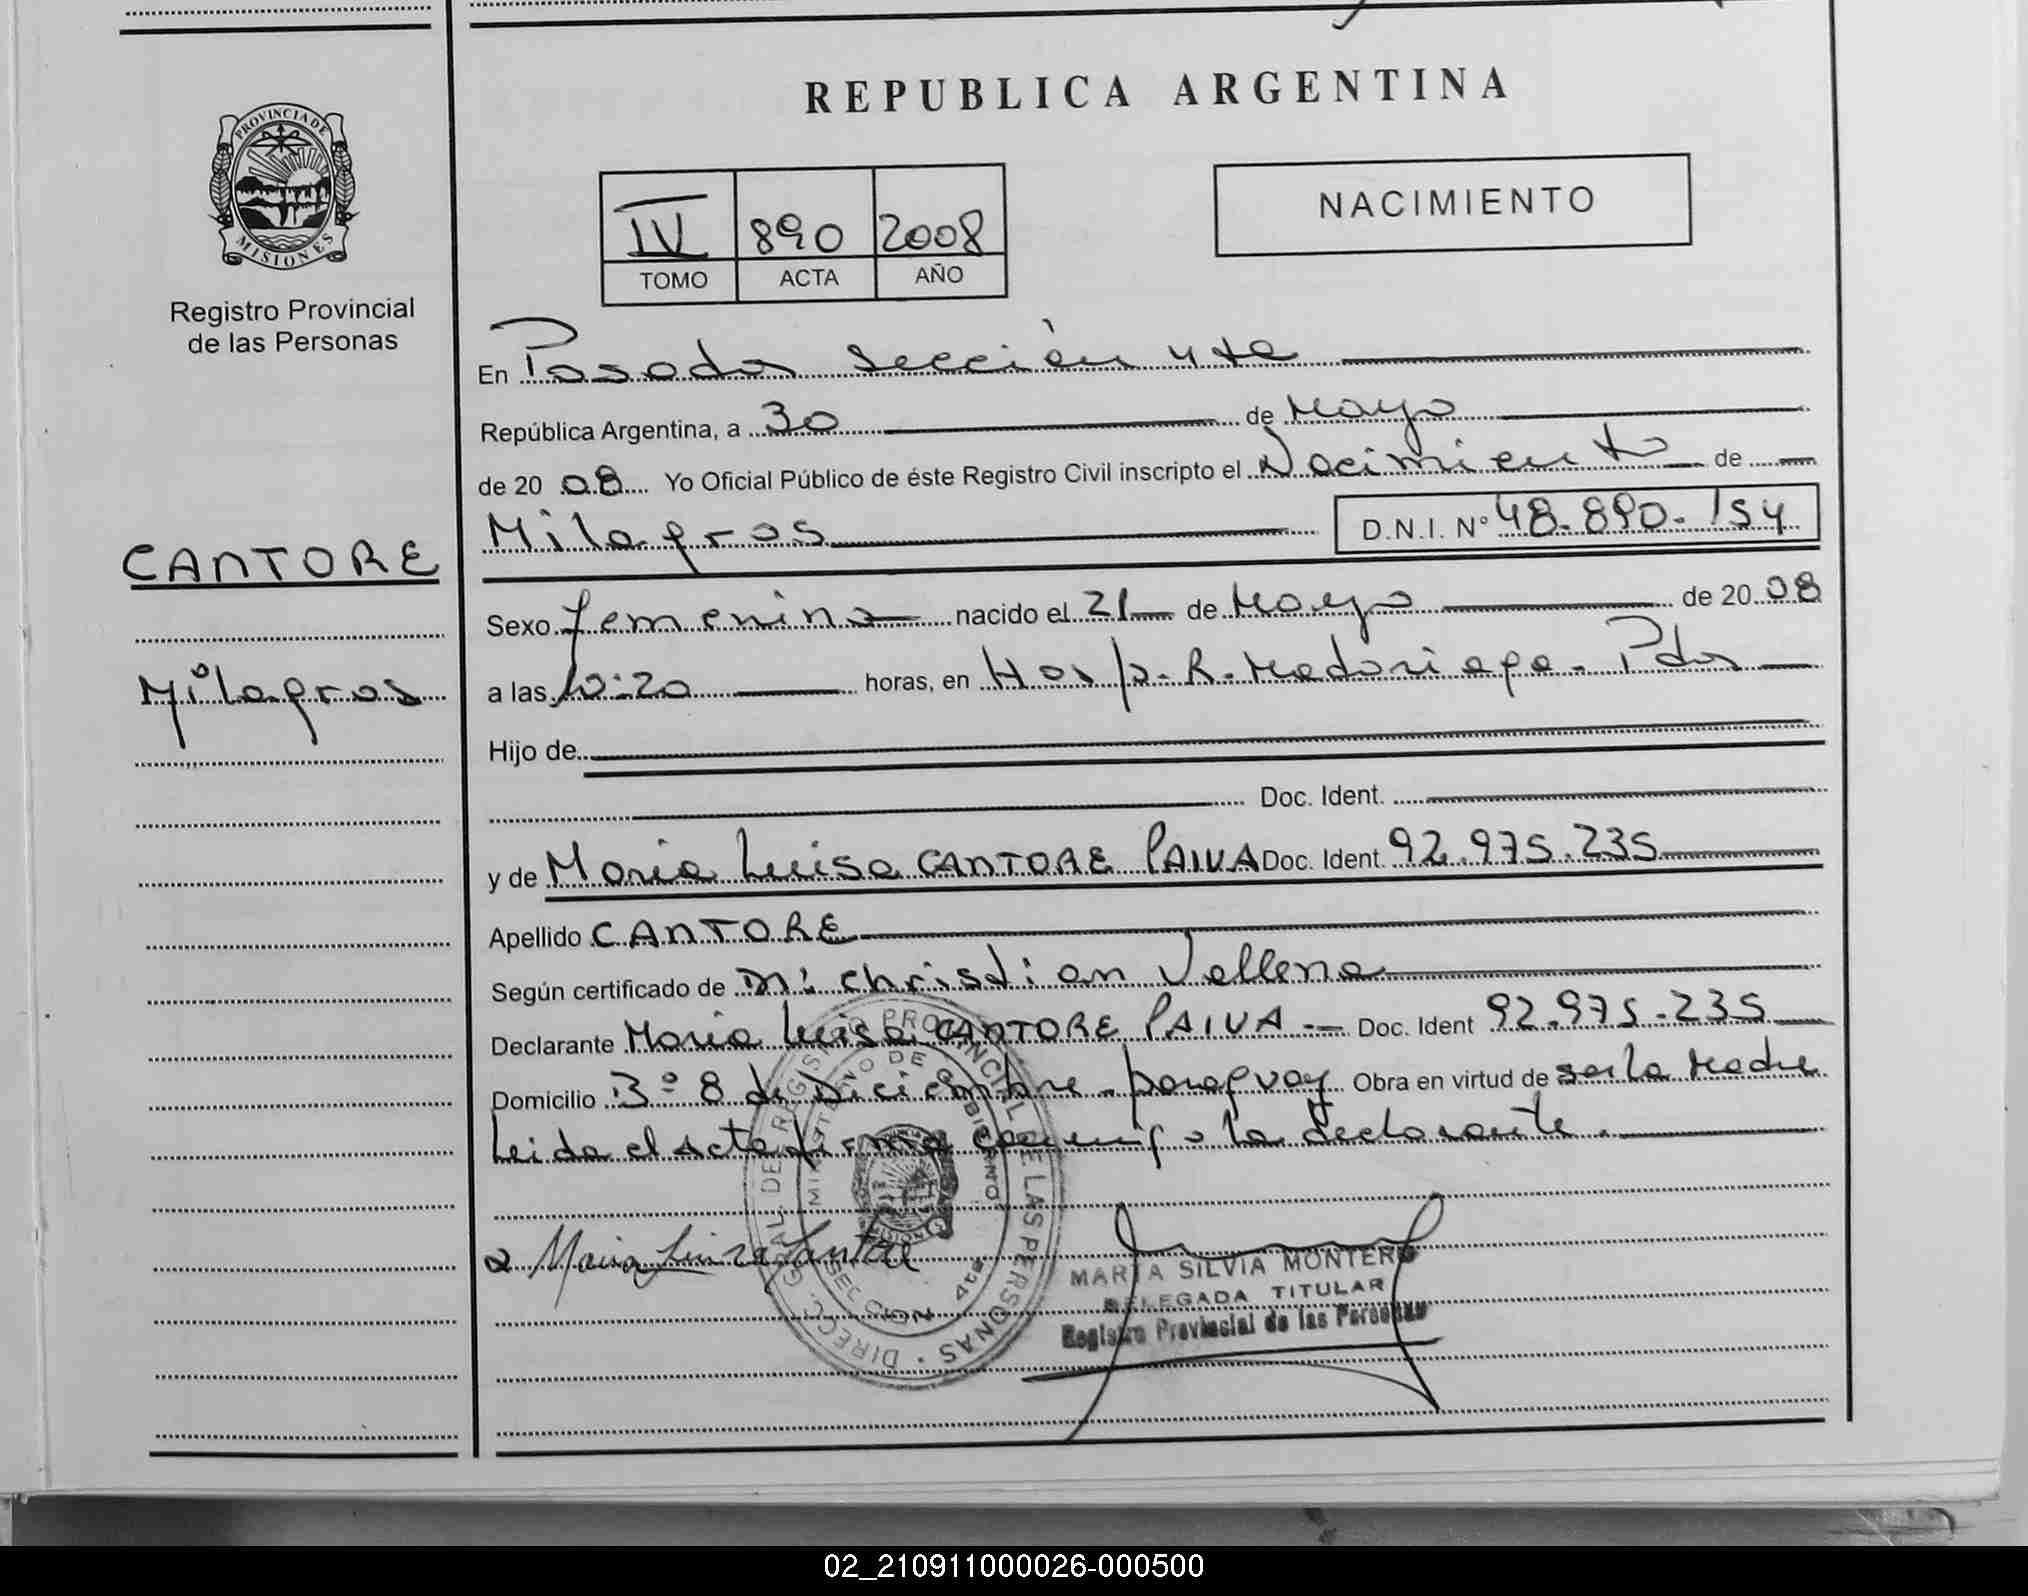 REPUBLICA ARGENTINA
PROVINCIA DE
MISIONES
Registro Provincial
de las Personas
IV 890 2008
TOMO ACTA AÑO
NACIMIENTO
En Posadas Sección 4ta
República Argentina, a 30 de Mayo
de 20 08 Yo Oficial Público de éste Registro Civil inscripto el Nacimiento de
Milagros D.N.I. N° 48.890.154
CANTORE
Milagros
Sexo femenino nacido el 21 de Mayo de 20 08
a las 10:20 horas, en Hosp. R. Madariaga - Pdas
Hijo de
Doc. Ident.
y de Maria Luisa CANTORE PAIVA Doc. Ident. 92.975.235
Apellido CANTORE
Según certificado de Christian Vallena
Declarante Maria Luisa CANTORE PAIVA Doc. Ident 92.975.235
Domicilio 3° 8 de Diciembre - paraguay Obra en virtud de ser la Madre
Leida el acta firma conmigo la declarante.
DIRECC. GRAL. DE REGISTRO PROVINCIAL DE LAS PERSONAS
MINISTERIO DE GOBIERNO
SECCION 4ta
Maria Luiza Cantore
MARTA SILVIA MONTERO
DELEGADA TITULAR
Registro Provincial de las Personas
02_210911000026-000500